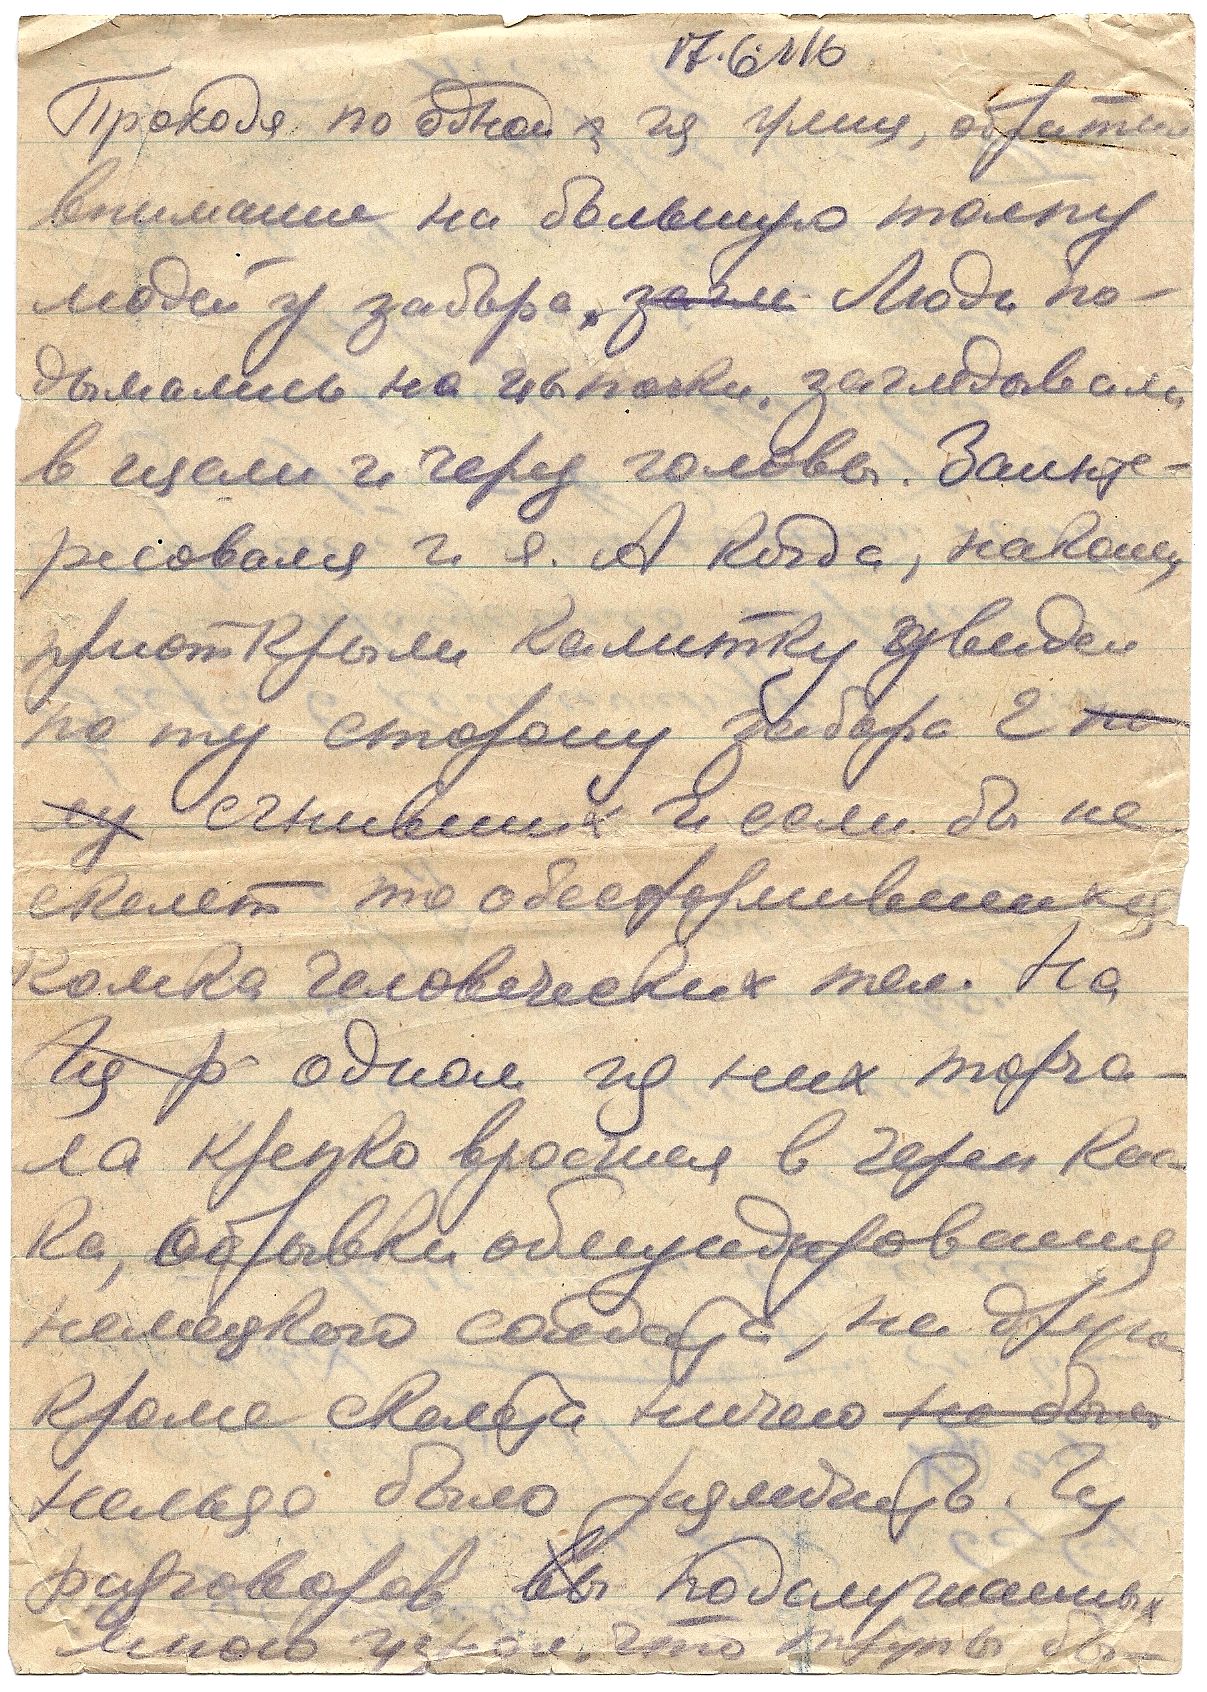 17.6.416
Проходя по одной х из улиц, обратил
внимание на большую толпу
людей у забора, загл Люди по-
дымались на цыпочки, заглядывали
в щели и через головы. Заинте-
ресовался и я. А когда, наконец
приоткрыли калитку увидел
по ту сторону забора 2 по
лу сгнивших и если бы не
скелет то обесформившихся
комка человеческих тел. На
Из р одном из них торча-
ла крепко вросшая в череп кас-
ка, обрывки обмундирования
немецкого солдата, на другом
кроме скелета ничего не было
нельзя было различить. Из
разговоров вы подслушанных
мною узнал, что трупы бы-